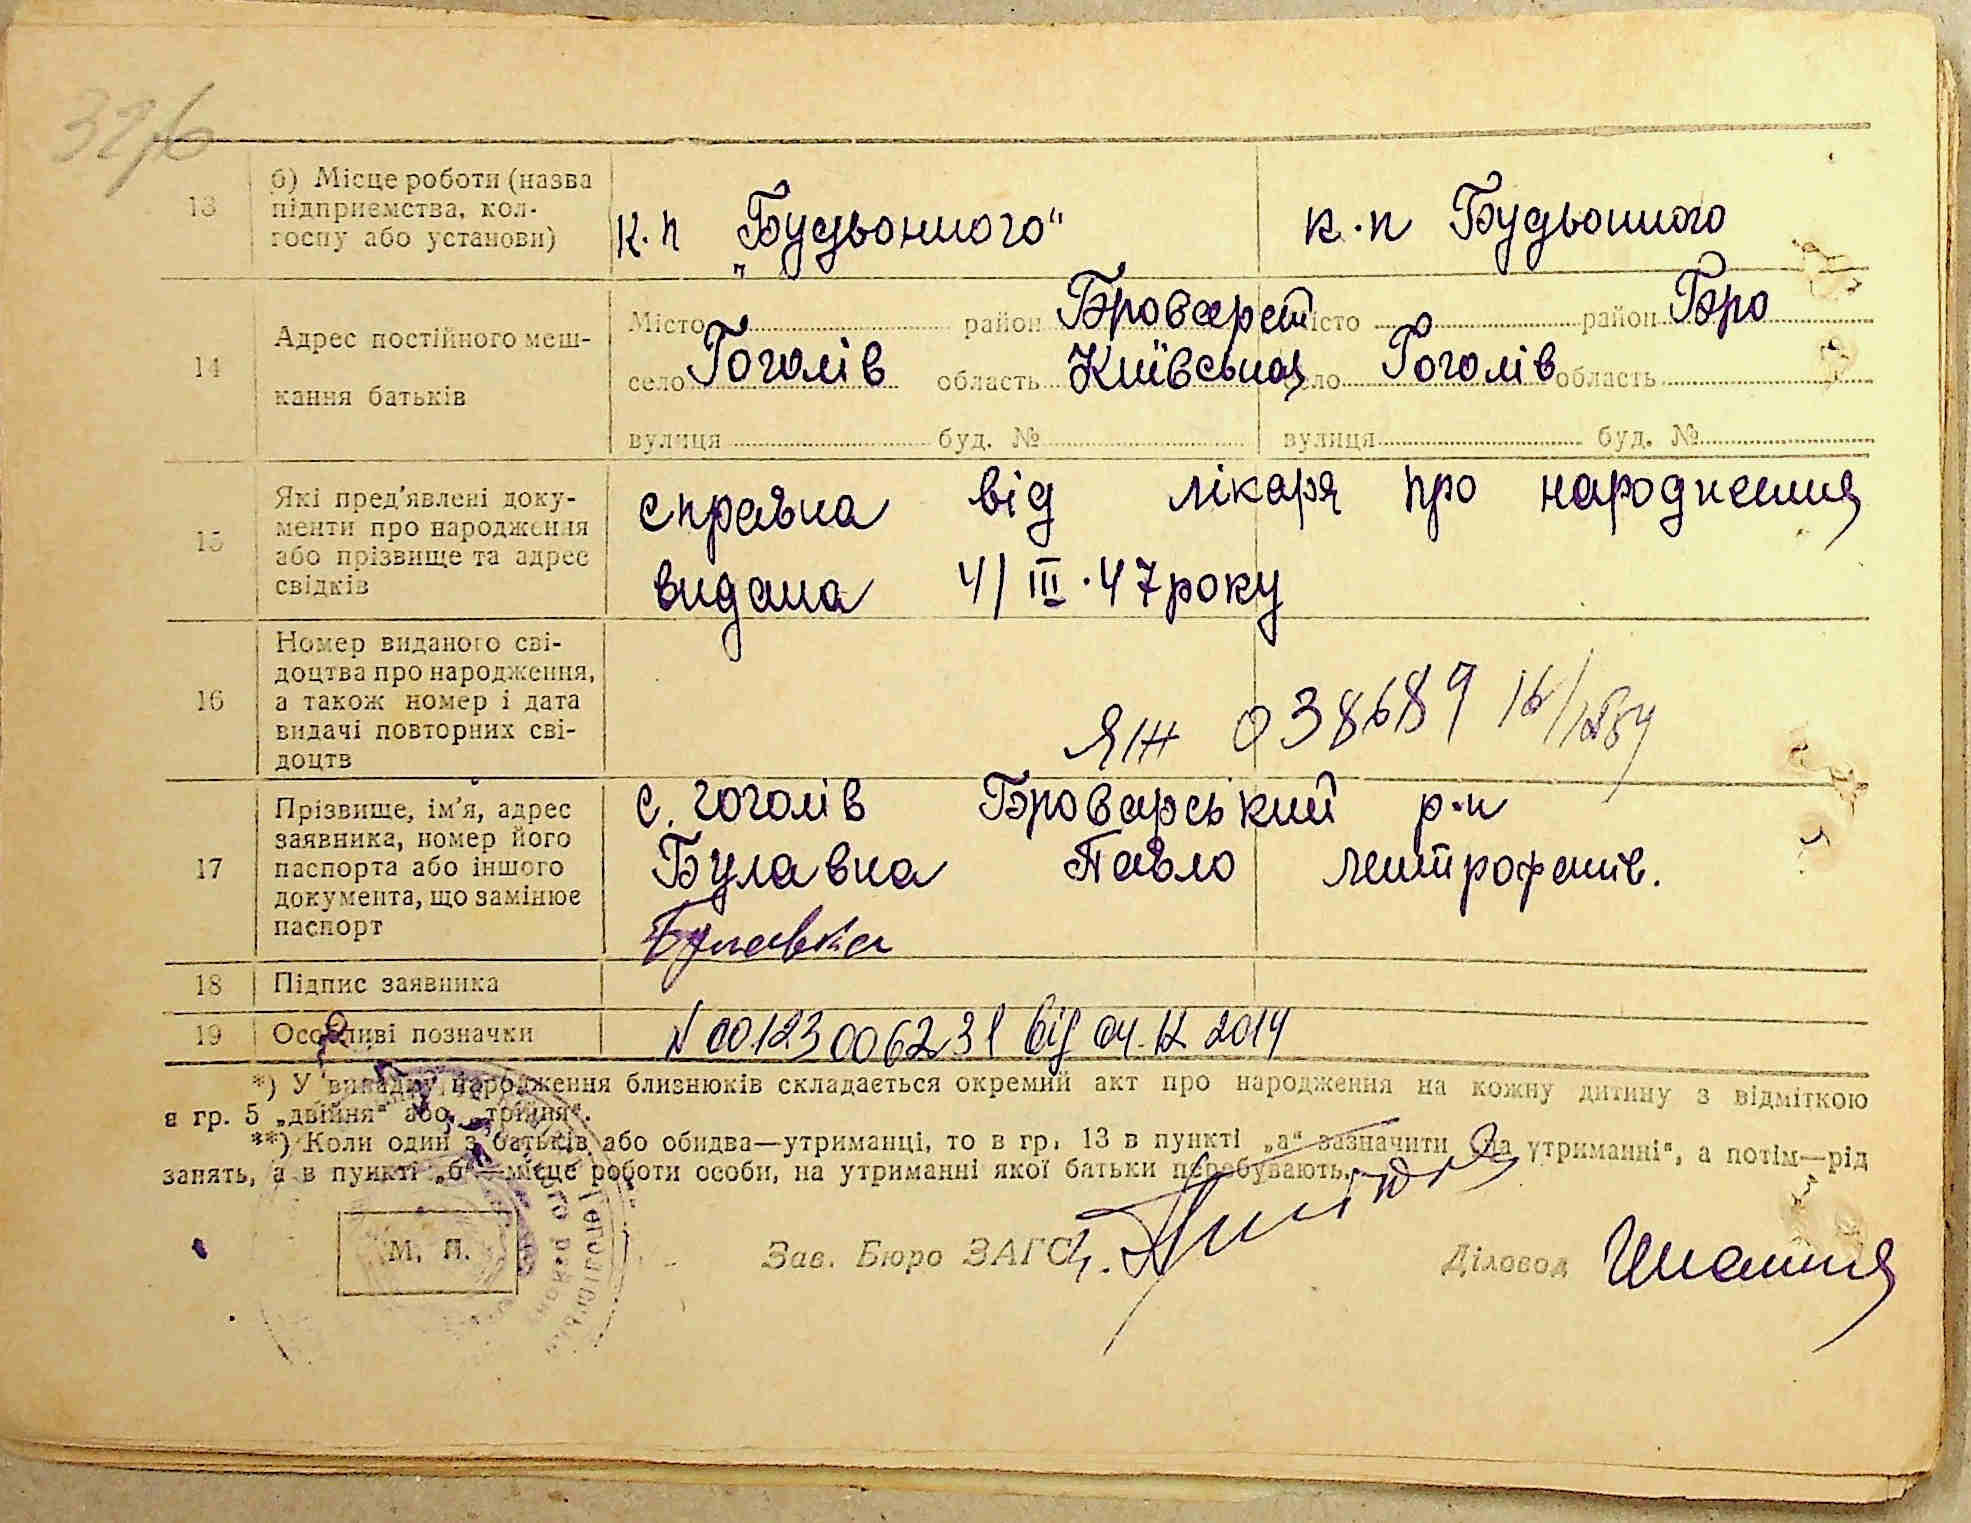 326
13
б) Місце роботи (назва
підприємства, кол-
госпу або установи)
к.п „Будьонного“
к.п Будьонного
14
Адрес постійного меш-
кання батьків
Місто район Броварськ
село Гоголів область Київська
вулиця буд. №
місто район Бро
село Гоголів область
вулиця буд. №
15
Які пред'явлені доку-
менти про народження
або прізвище та адрес
свідків
справка від лікаря про народження
видана 4/III.47 року
16
Номер виданого сві-
доцтва про народження,
а також номер і дата
видачі повторних сві-
доцтв
038689
17
Прізвище, ім'я, адрес
заявника, номер його
паспорта або іншого
документа, що замінює
паспорт
с. Гоголів Броварський р-н
Булавка Павло Митрофанів.
Булавка
18
Підпис заявника
19
Особливі позначки
N 00123006231 від 04.12 2014
*) У випадку народження близнюків складається окремий акт про народження на кожну дитину з відміткою
в гр. 5 „двійня“ або „трійня“.
**) Коли один з батьків або обидва—утриманці, то в гр. 13 в пункті „а“ зазначити „на утриманні“, а потім—рід
занять, а в пункті „б“—місце роботи особи, на утриманні якої батьки перебувають.
М. П.
Зав. Бюро ЗАГС
Діловод